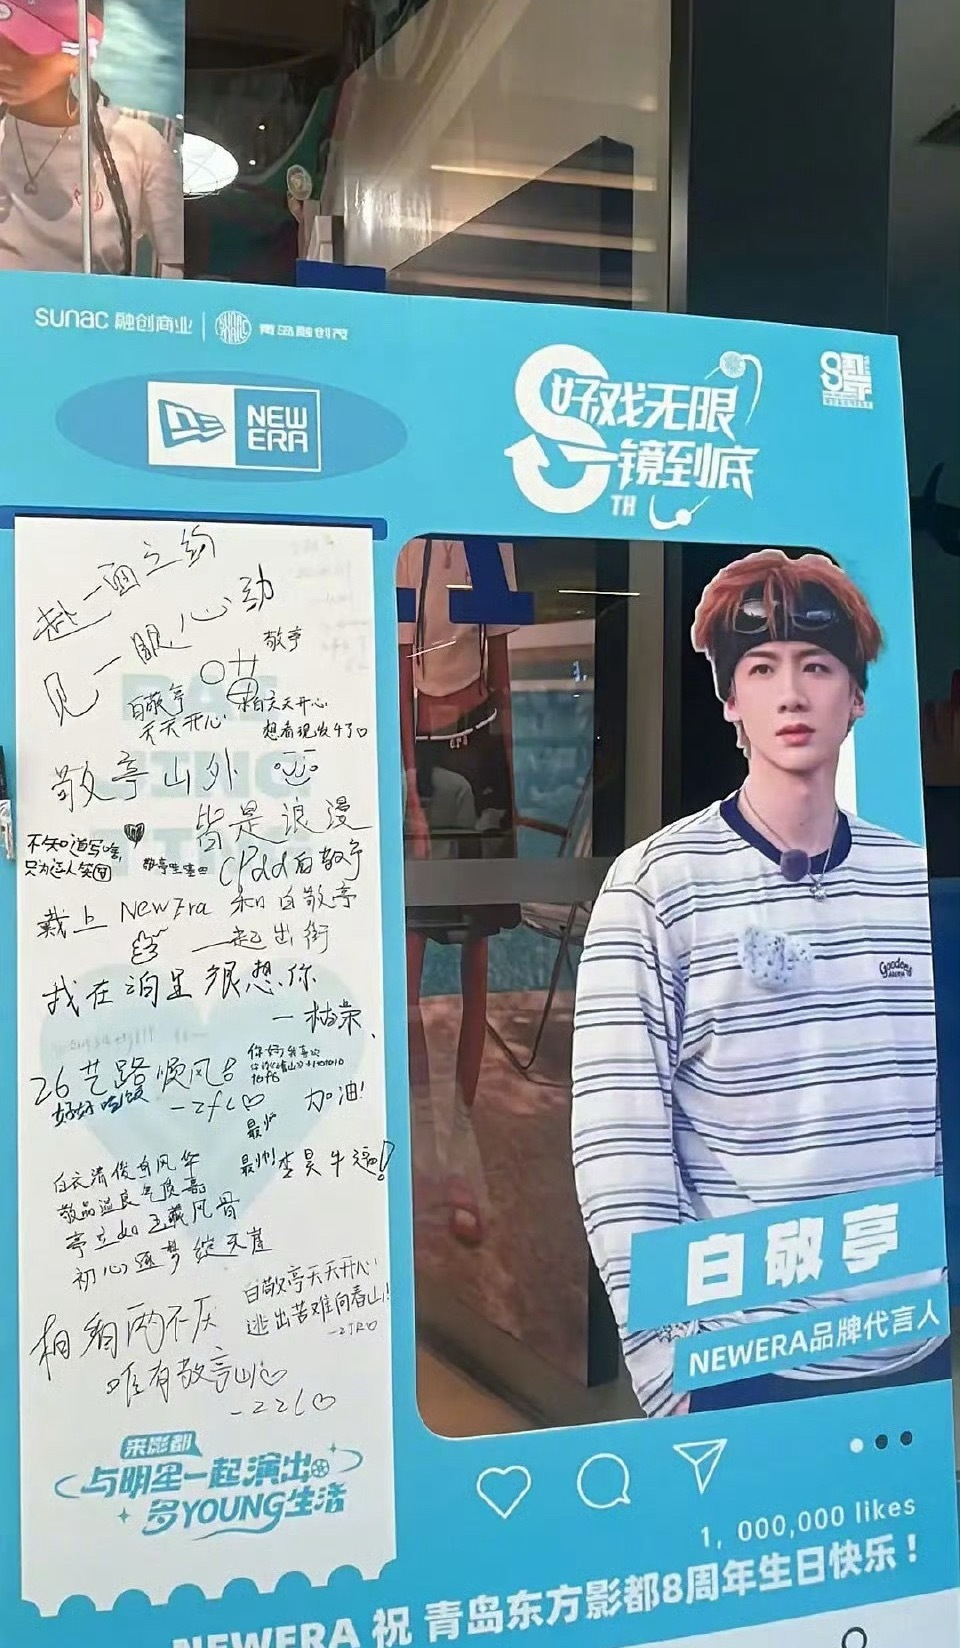 sunac 融创商业 青岛融创茂
NEW ERA
好戏无限
镜到底
8TH
8周年
赴一面之约
见一眼心动
敬亭
白敬亭
天天开心
天天开心
想看现发牛了
敬亭山外
皆是浪漫
不知道写啥,
只为运人笑图
cpdd白敬亭
戴上 NewEra 和白敬亭
一起出街
我在泊里很想你
26艺路顺风
好好吃饭
-zfl♡
加油!
最帅
最帅!李昊牛逼!
白衣清俊自风华
敬品温良气质嘉
亭立如玉藏风骨
初心逐梦绽天崖
白敬亭天天开心
逃出苦难向春山!
-ZJR♡
相看两不厌
唯有敬亭山♡
-zzl♡
来影都
与明星一起演出
多YOUNG生活
Goodeny
白敬亭
NEWERA品牌代言人
1, 000,000 likes
NEWERA 祝 青岛东方影都8周年生日快乐！